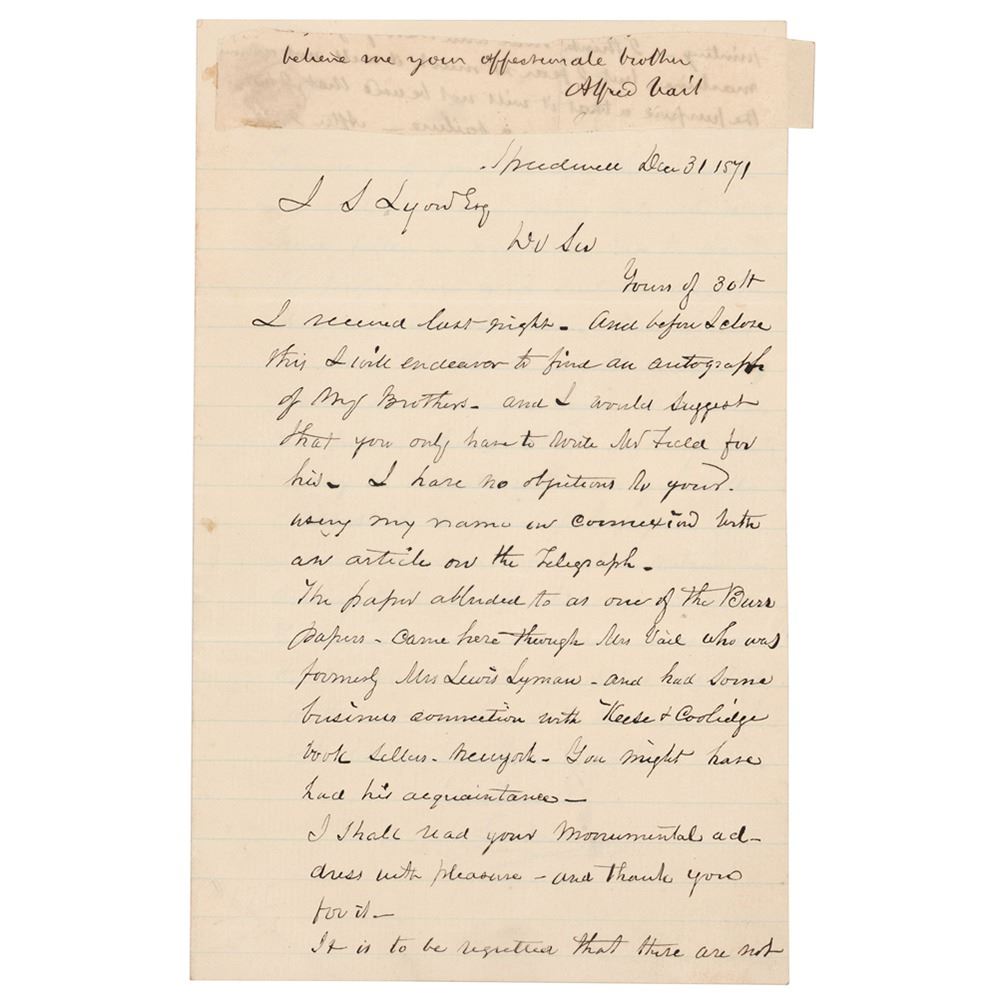 believe me your affectionate brother
Alfred Vail
Speedwell Dec 31 1871
I S Lyon Esq
Dr Sir
Yours of 30th
I received last night - And before I close
this I will endeavor to find an autograph
of My Brothers - and I would suggest
that you only have to write Mr Field for
his - I have no objections to your
using my name in connexion with
an article on the Telegraph -
The paper alluded to as one of the Burr
papers - came here through Mrs Vail who was
formerly Mrs Lewis Lyman - and had some
business connection with Keese & Coolidge
book sellers - Newyork - You might have
had his acquaintance -
I shall read your Monumental ad-
dress with pleasure - and thank you
for it -
It is to be regretted that there are not